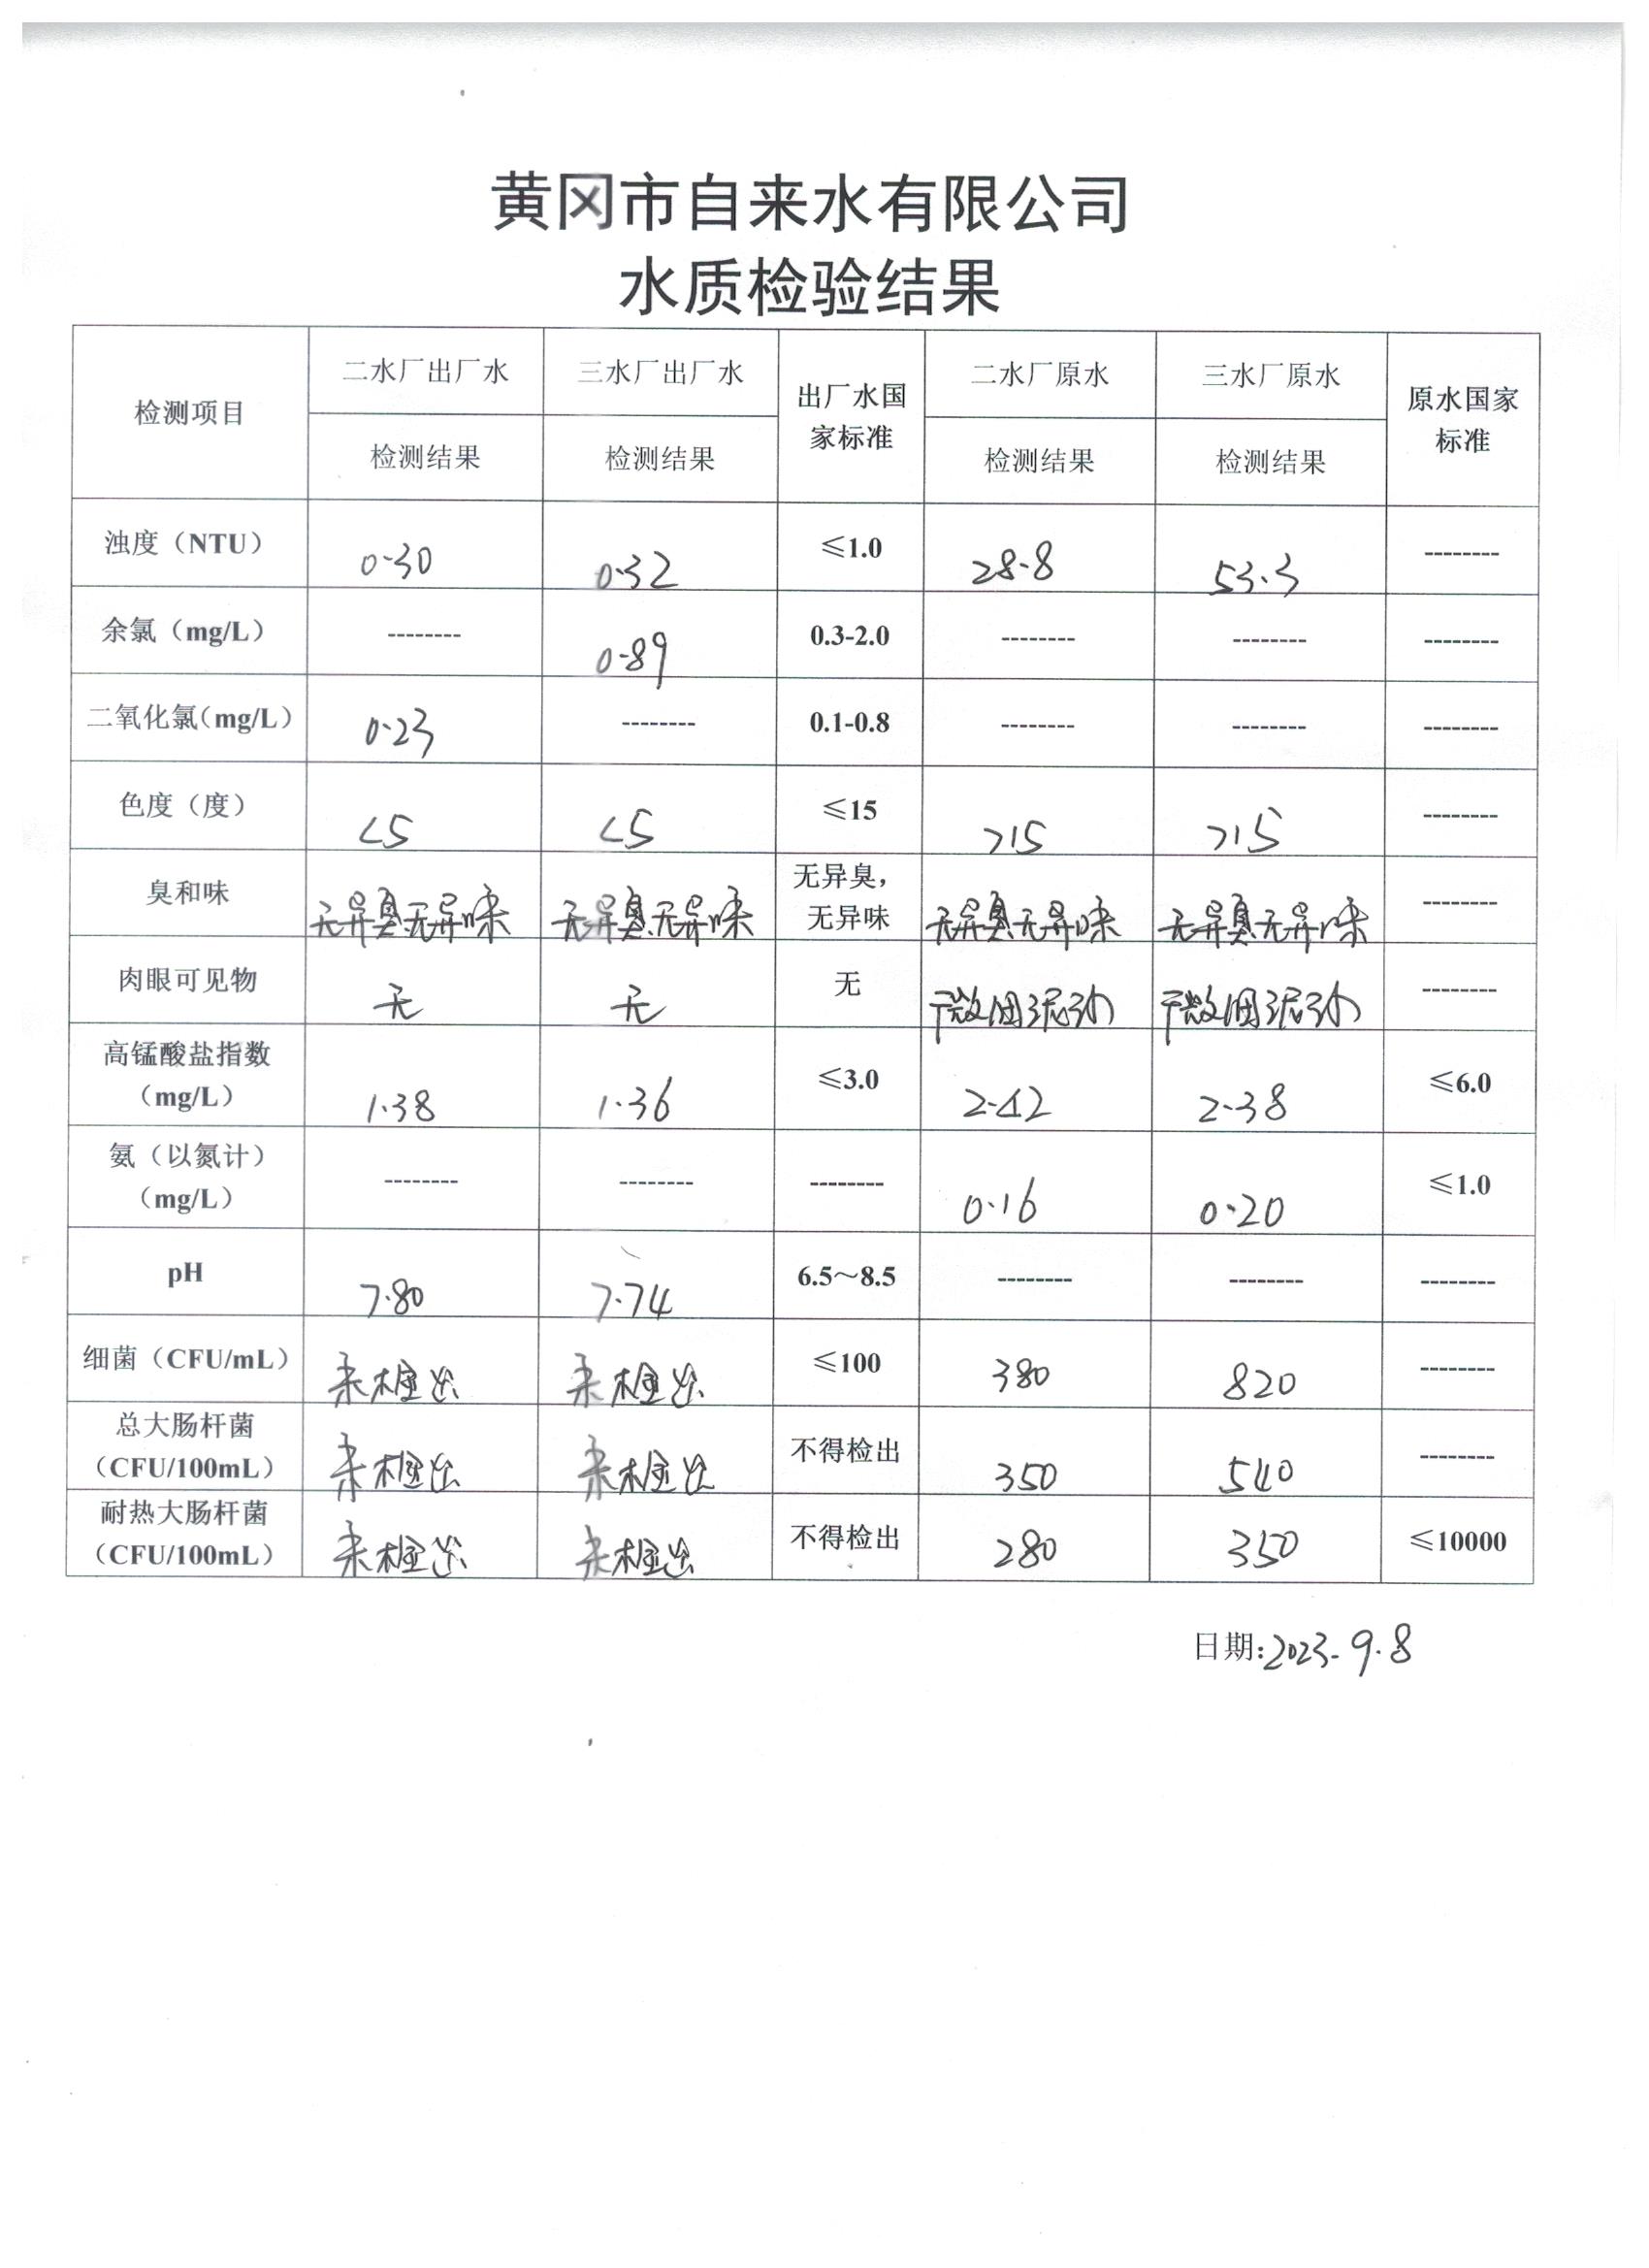 黄冈市自来水有限公司
水质检验结果
检测项目 二水厂出厂水 三水厂出厂水 出厂水国家标准 二水厂原水 三水厂原水 原水国家标准
检测结果 检测结果 检测结果 检测结果
浊度（NTU） 0.30 0.32 ≤1.0 28.8 53.3 --------
余氯（mg/L） -------- 0.89 0.3-2.0 -------- -------- --------
二氧化氯（mg/L） 0.23 -------- 0.1-0.8 -------- -------- --------
色度（度） <5 <5 ≤15 >15 >15 --------
臭和味 无异臭无异味 无异臭无异味 无异臭，无异味 无异臭无异味 无异臭无异味 --------
肉眼可见物 无 无 无 微泥沙 微泥沙 --------
高锰酸盐指数（mg/L） 1.38 1.36 ≤3.0 2.42 2.38 ≤6.0
氨（以氮计）（mg/L） -------- -------- -------- 0.16 0.20 ≤1.0
pH 7.80 7.74 6.5～8.5 -------- -------- --------
细菌（CFU/mL） 未检出 未检出 ≤100 380 820 --------
总大肠杆菌（CFU/100mL） 未检出 未检出 不得检出 350 540 --------
耐热大肠杆菌（CFU/100mL） 未检出 未检出 不得检出 280 350 ≤10000
日期:2023.9.8